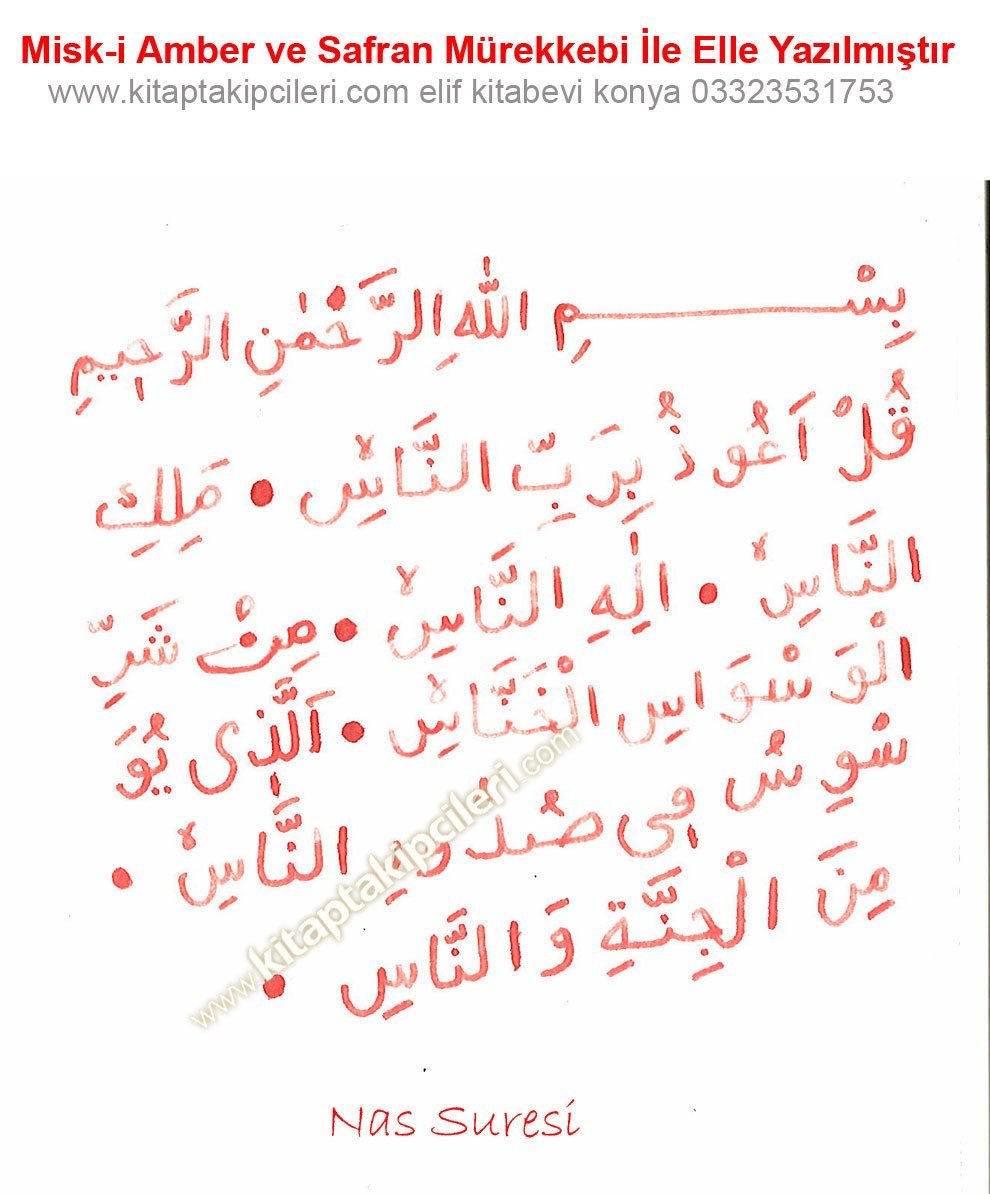 Misk-i Amber ve Safran Mürekkebi İle Elle Yazılmıştır
www.kitaptakipcileri.com elif kitabevi konya 03323531753
بِسْمِ اللّٰهِ الرَّحْمٰنِ الرَّحِيمِ
قُلْ اَعُوذُ بِرَبِّ النَّاسِۙ • مَلِكِ
النَّاسِۙ • اِلٰهِ النَّاسِۙ • مِنْ شَرِّ
الْوَسْوَاسِ الْخَنَّاسِۙ • اَلَّذٖى يُوَ
سْوِسُ فٖى صُدُورِ النَّاسِۙ •
مِنَ الْجِنَّةِ وَالنَّاسِ •
www.kitaptakipcileri.com
Nas Suresi